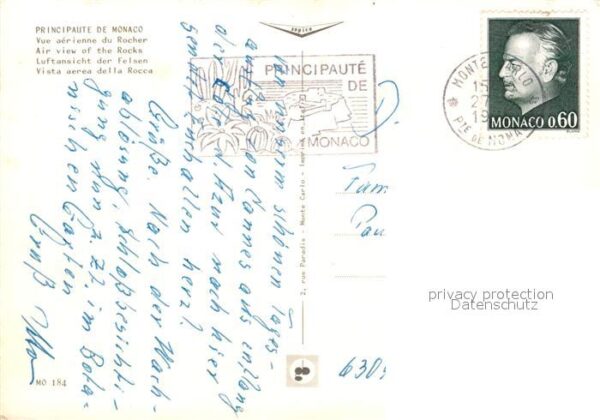 PRINCIPAUTE DE MONACO
Vue aérienne du Rocher
Air view of the Rocks
Luftansicht der Felsen
Vista aerea della Rocca
MONTE-CARLO
15
27
19
PTÉ DE MONACO
MONACO 0,60
PRINCIPAUTÉ
DE
MONACO
schönen Tages-
ausflug von Cannes aus entlang
der Côte d'Azur nach hier
senden
herzl.
Grüße. Nach der Wach-
ablösung, Schloßbesichti-
gung nun z. Zt. im Bota-
nischen Garten
Gruß
2, rue Paradis - Monte Carlo - Imprimé en Italie
Fam
Pau
6305
privacy protection
Datenschutz
MO 184